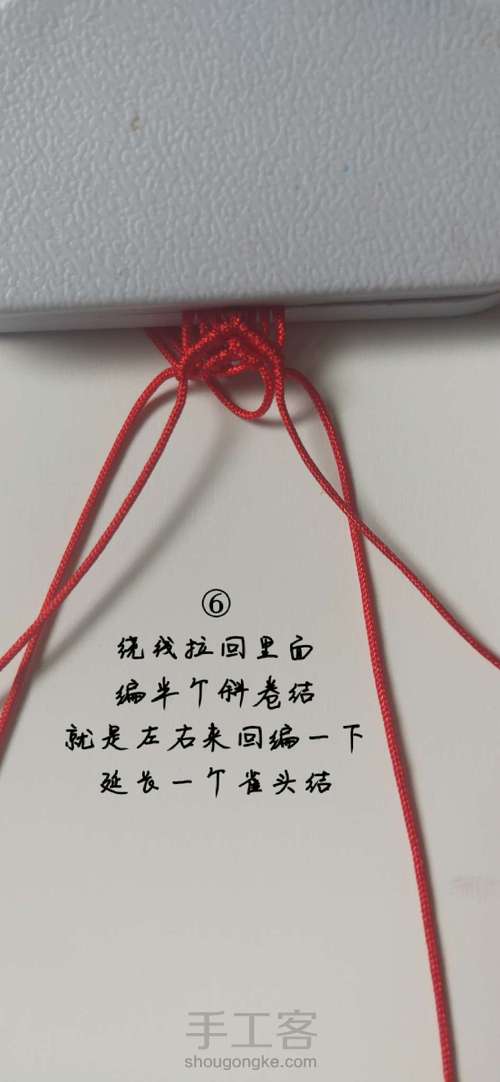 ⑥
绕线拉回里面
编半个斜卷结
就是左右来回编一下
延长一个雀头结
手工客
shougongke.com